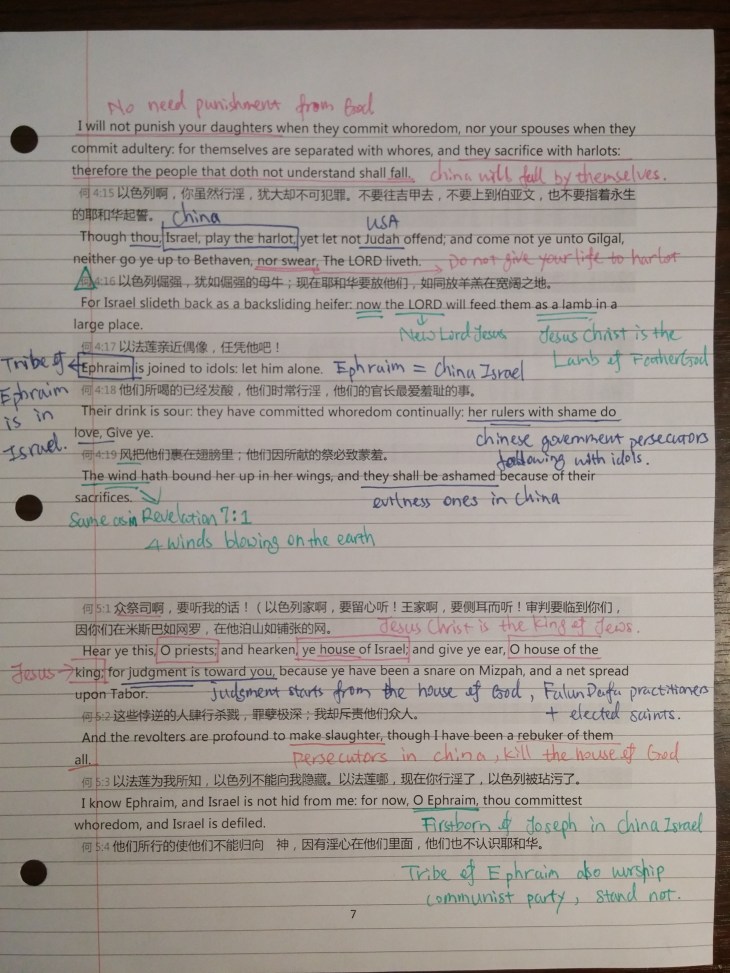 No need punishment from God
I will not punish your daughters when they commit whoredom, nor your spouses when they
commit adultery: for themselves are separated with whores, and they sacrifice with harlots:
therefore the people that doth not understand shall fall. China will fall by themselves.
何 4:15 以色列啊，你虽然行淫，犹大却不可犯罪。不要往吉甲去，不要上到伯亚文，也不要指着永生
的耶和华起誓。 China USA
Though thou, Israel, play the harlot, yet let not Judah offend; and come not ye unto Gilgal,
neither go ye up to Bethaven, nor swear, The LORD liveth. → Do not give your life to harlot
何 4:16 以色列倔强，犹如倔强的母牛；现在耶和华要放他们，如同放羊羔在宽阔之地。
For Israel slideth back as a backsliding heifer: now the LORD will feed them as a lamb in a
large place.
New Lord Jesus Jesus Christ is the
Lamb of FeatherGod
何 4:17 以法莲亲近偶像，任凭他吧！
Tribe of Ephraim is in Israel. ← Ephraim is joined to idols: let him alone. Ephraim = China Israel
何 4:18 他们所喝的已经发酸，他们时常行淫，他们的官长最爱羞耻的事。
Their drink is sour: they have committed whoredom continually: her rulers with shame do
love, Give ye. Chinese government persecutors
following with idols.
何 4:19 风把他们裹在翅膀里；他们因所献的祭必致蒙羞。
The wind hath bound her up in her wings, and they shall be ashamed because of their
sacrifices. evilness ones in China
Same as in Revelation 7:1
4 winds blowing on the earth
何 5:1 众祭司啊，要听我的话！（以色列家啊，要留心听！王家啊，要侧耳而听！审判要临到你们，
因你们在米斯巴如网罗，在他泊山如铺张的网。 Jesus Christ is the King of Jews.
Hear ye this, O priests; and hearken, ye house of Israel; and give ye ear, O house of the
Jesus → king; for judgment is toward you, because ye have been a snare on Mizpah, and a net spread
upon Tabor. judgment starts from the house of God, Falun Dafa practitioners
+ elected saints.
何 5:2 这些悖逆的人肆行杀戮，罪孽极深；我却斥责他们众人。
And the revolters are profound to make slaughter, though I have been a rebuker of them
all. persecutors in China, kill the house of God
何 5:3 以法莲为我所知，以色列不能向我隐藏。以法莲哪，现在你行淫了，以色列被玷污了。
I know Ephraim, and Israel is not hid from me: for now, O Ephraim, thou committest
whoredom, and Israel is defiled. Firstborn of Joseph in China Israel
何 5:4 他们所行的使他们不能归向 神，因有淫心在他们里面，他们也不认识耶和华。
Tribe of Ephraim also worship
communist party, stand not.
7